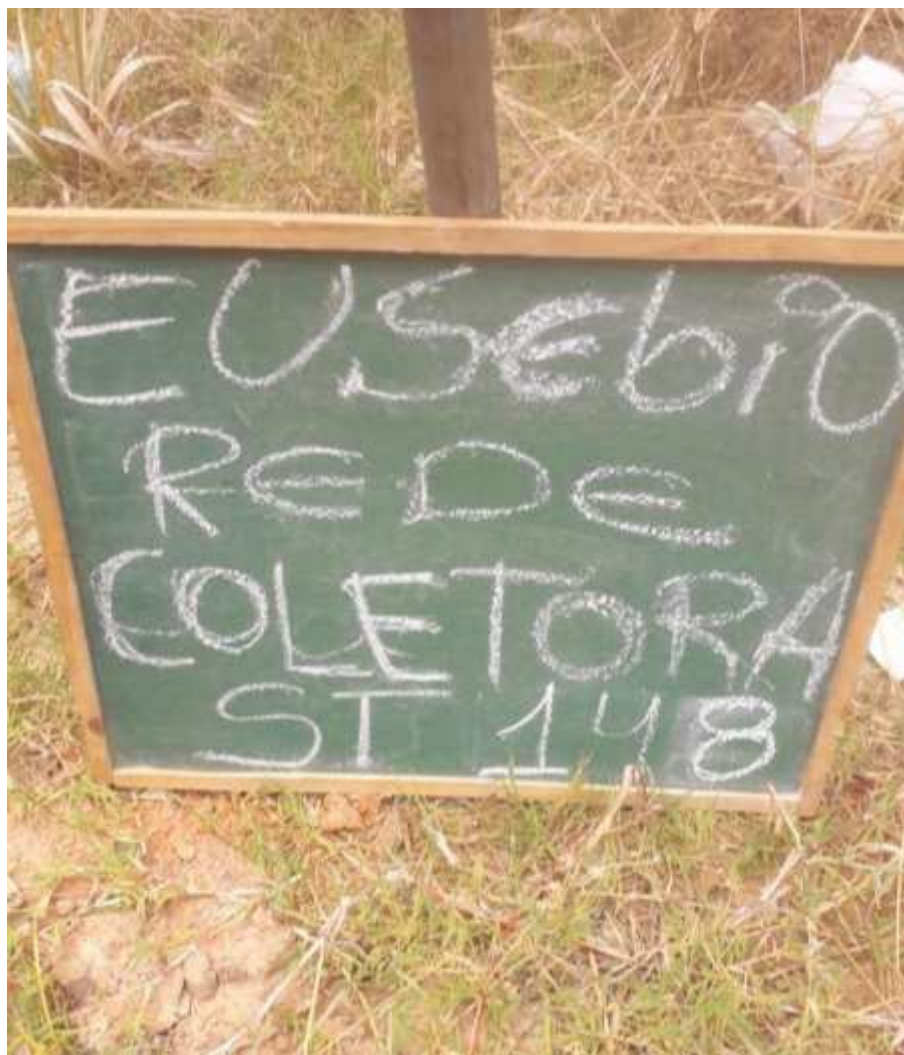 EUSebiO
REDE
COLETORA
ST 148